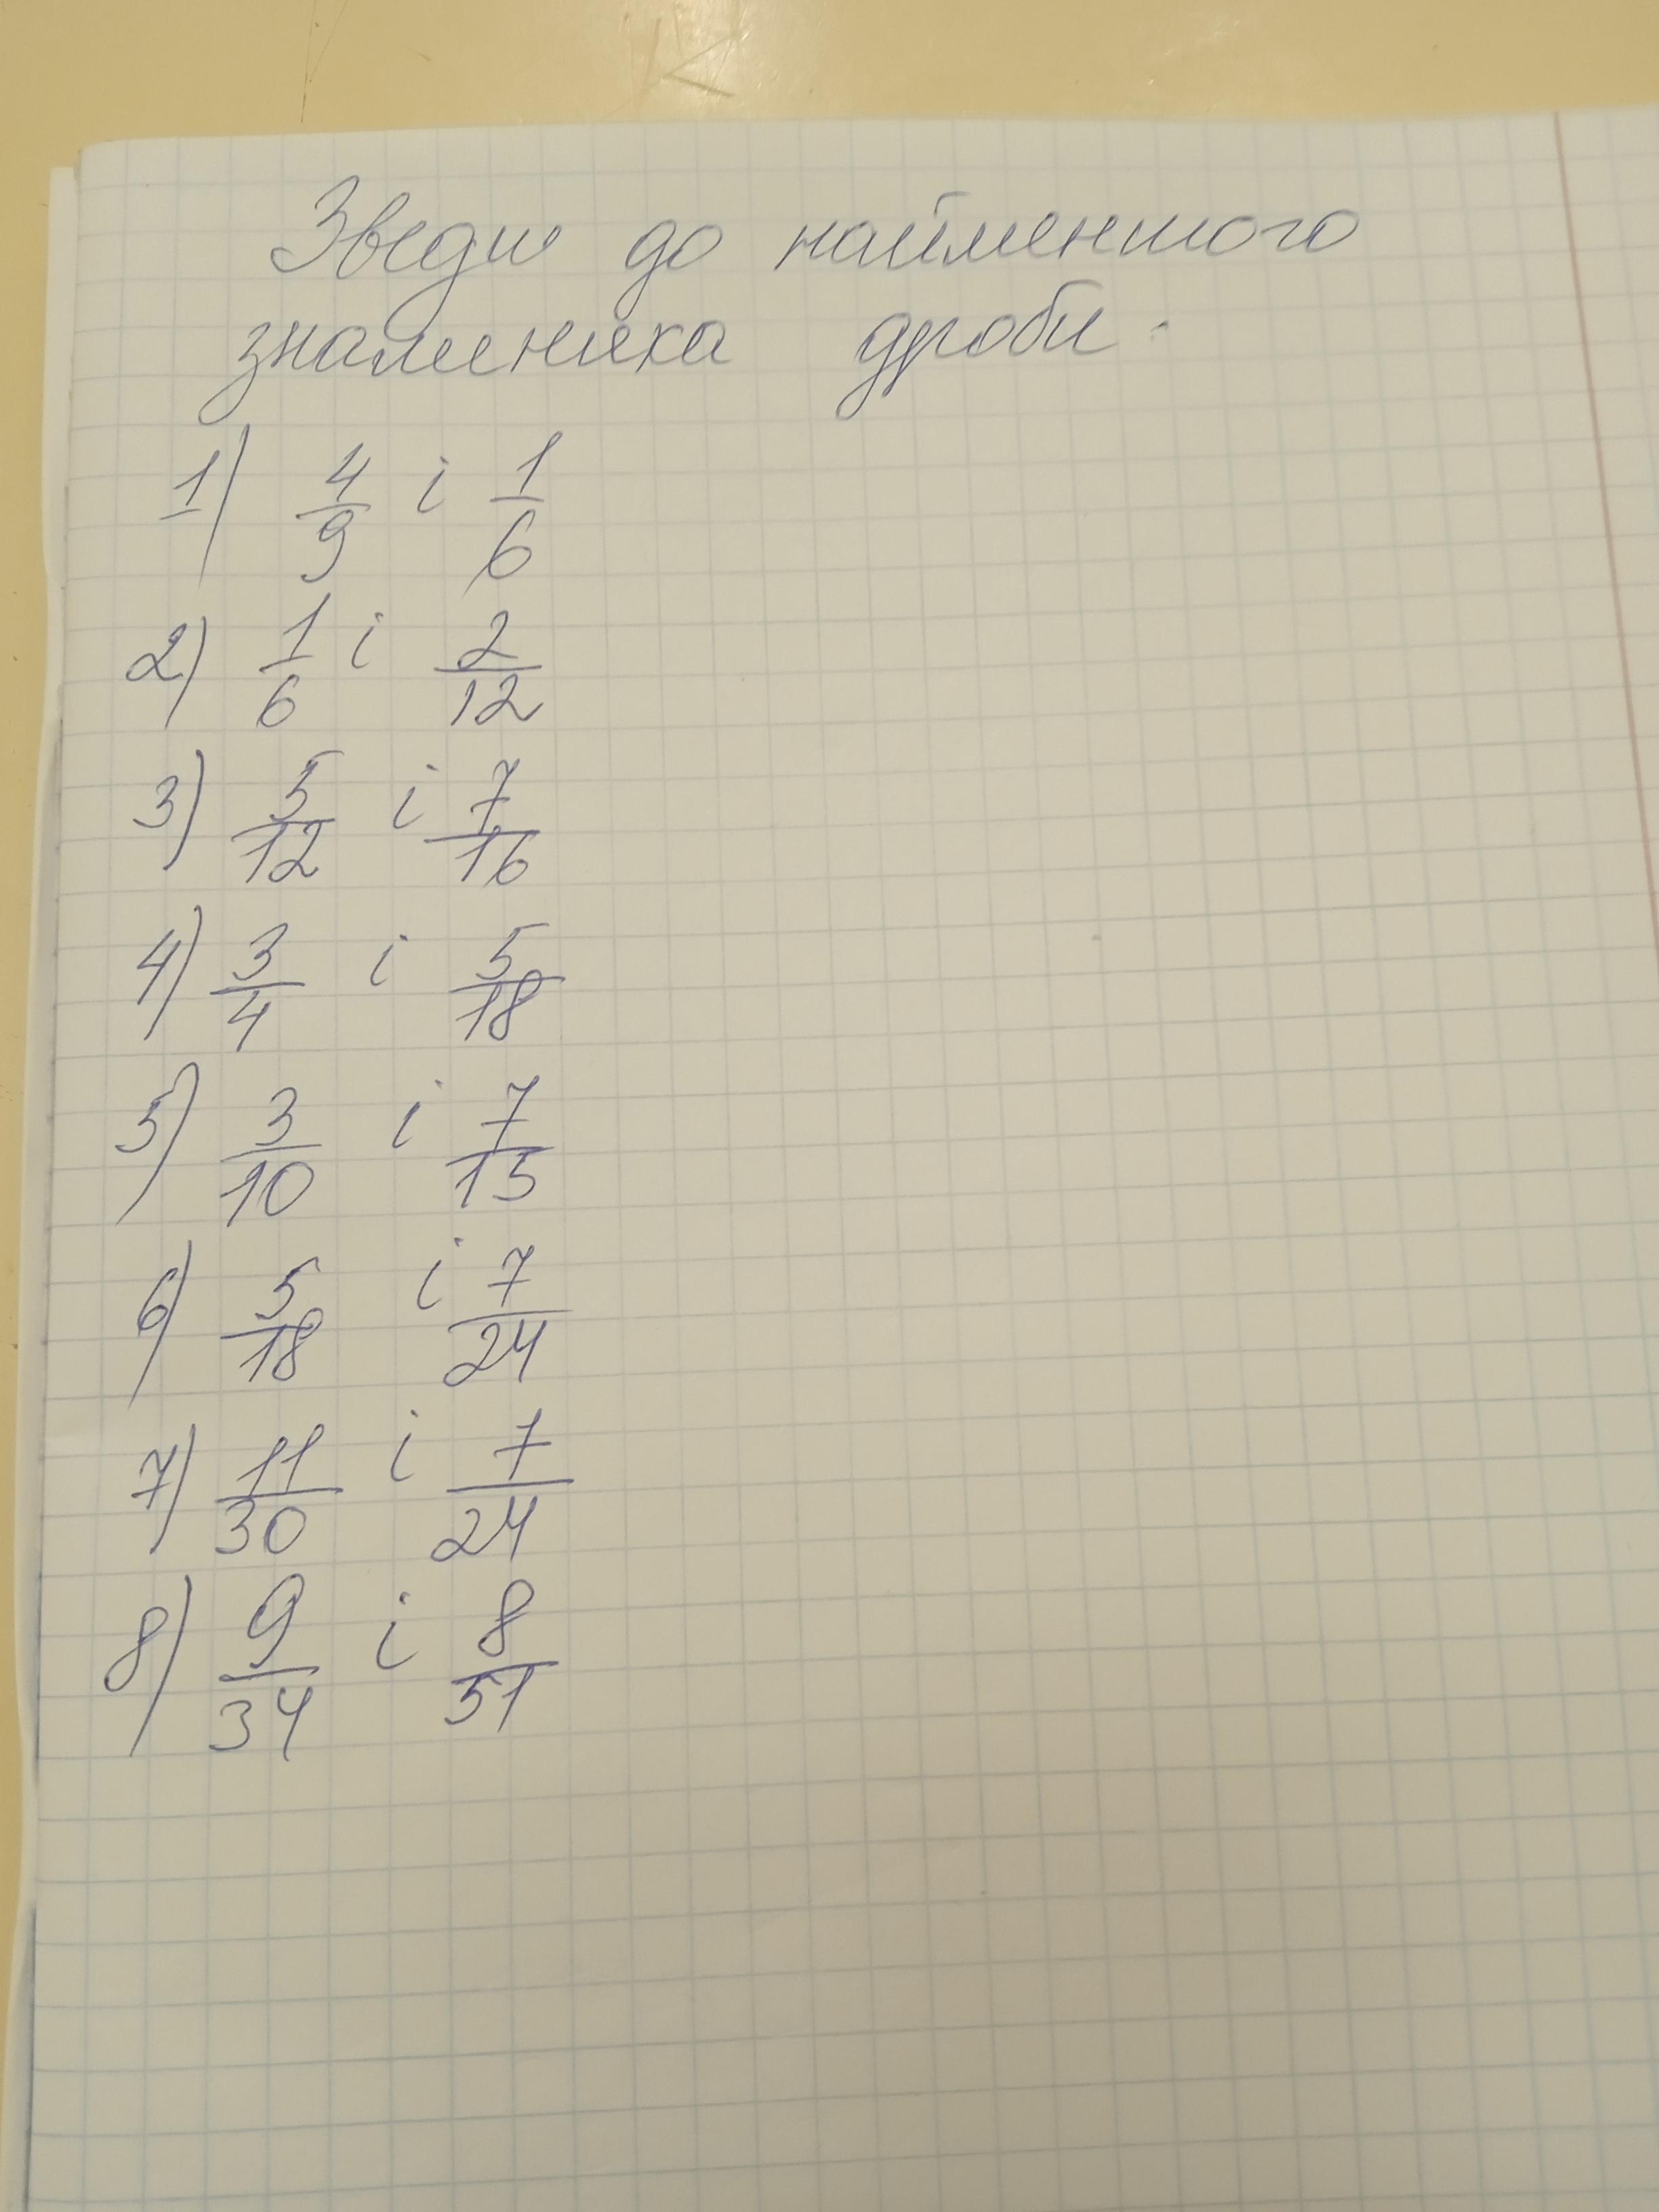 Зведи до найменшого
знаменика дроби:
1) 4/9 і 1/6
2) 1/6 і 2/12
3) 5/12 і 7/16
4) 3/4 і 5/18
5) 3/10 і 7/15
6) 5/18 і 7/24
7) 11/30 і 7/24
8) 9/34 і 8/51